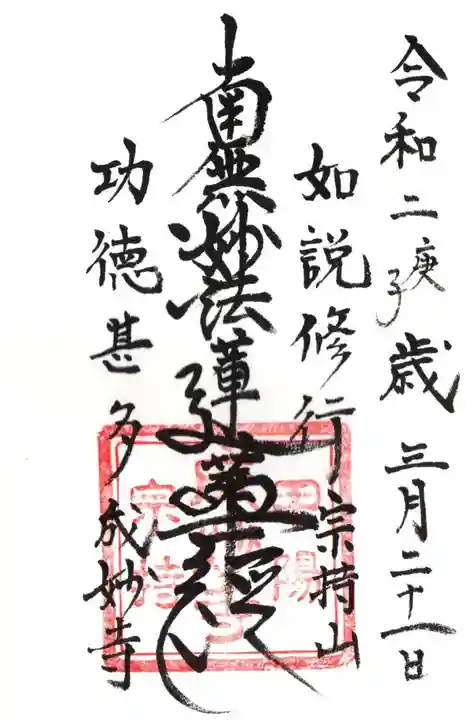 令和二庚子歳三月二十一日
如説修行 宗持山
南無妙法蓮華経
功徳甚多 成妙寺
陽
宗持